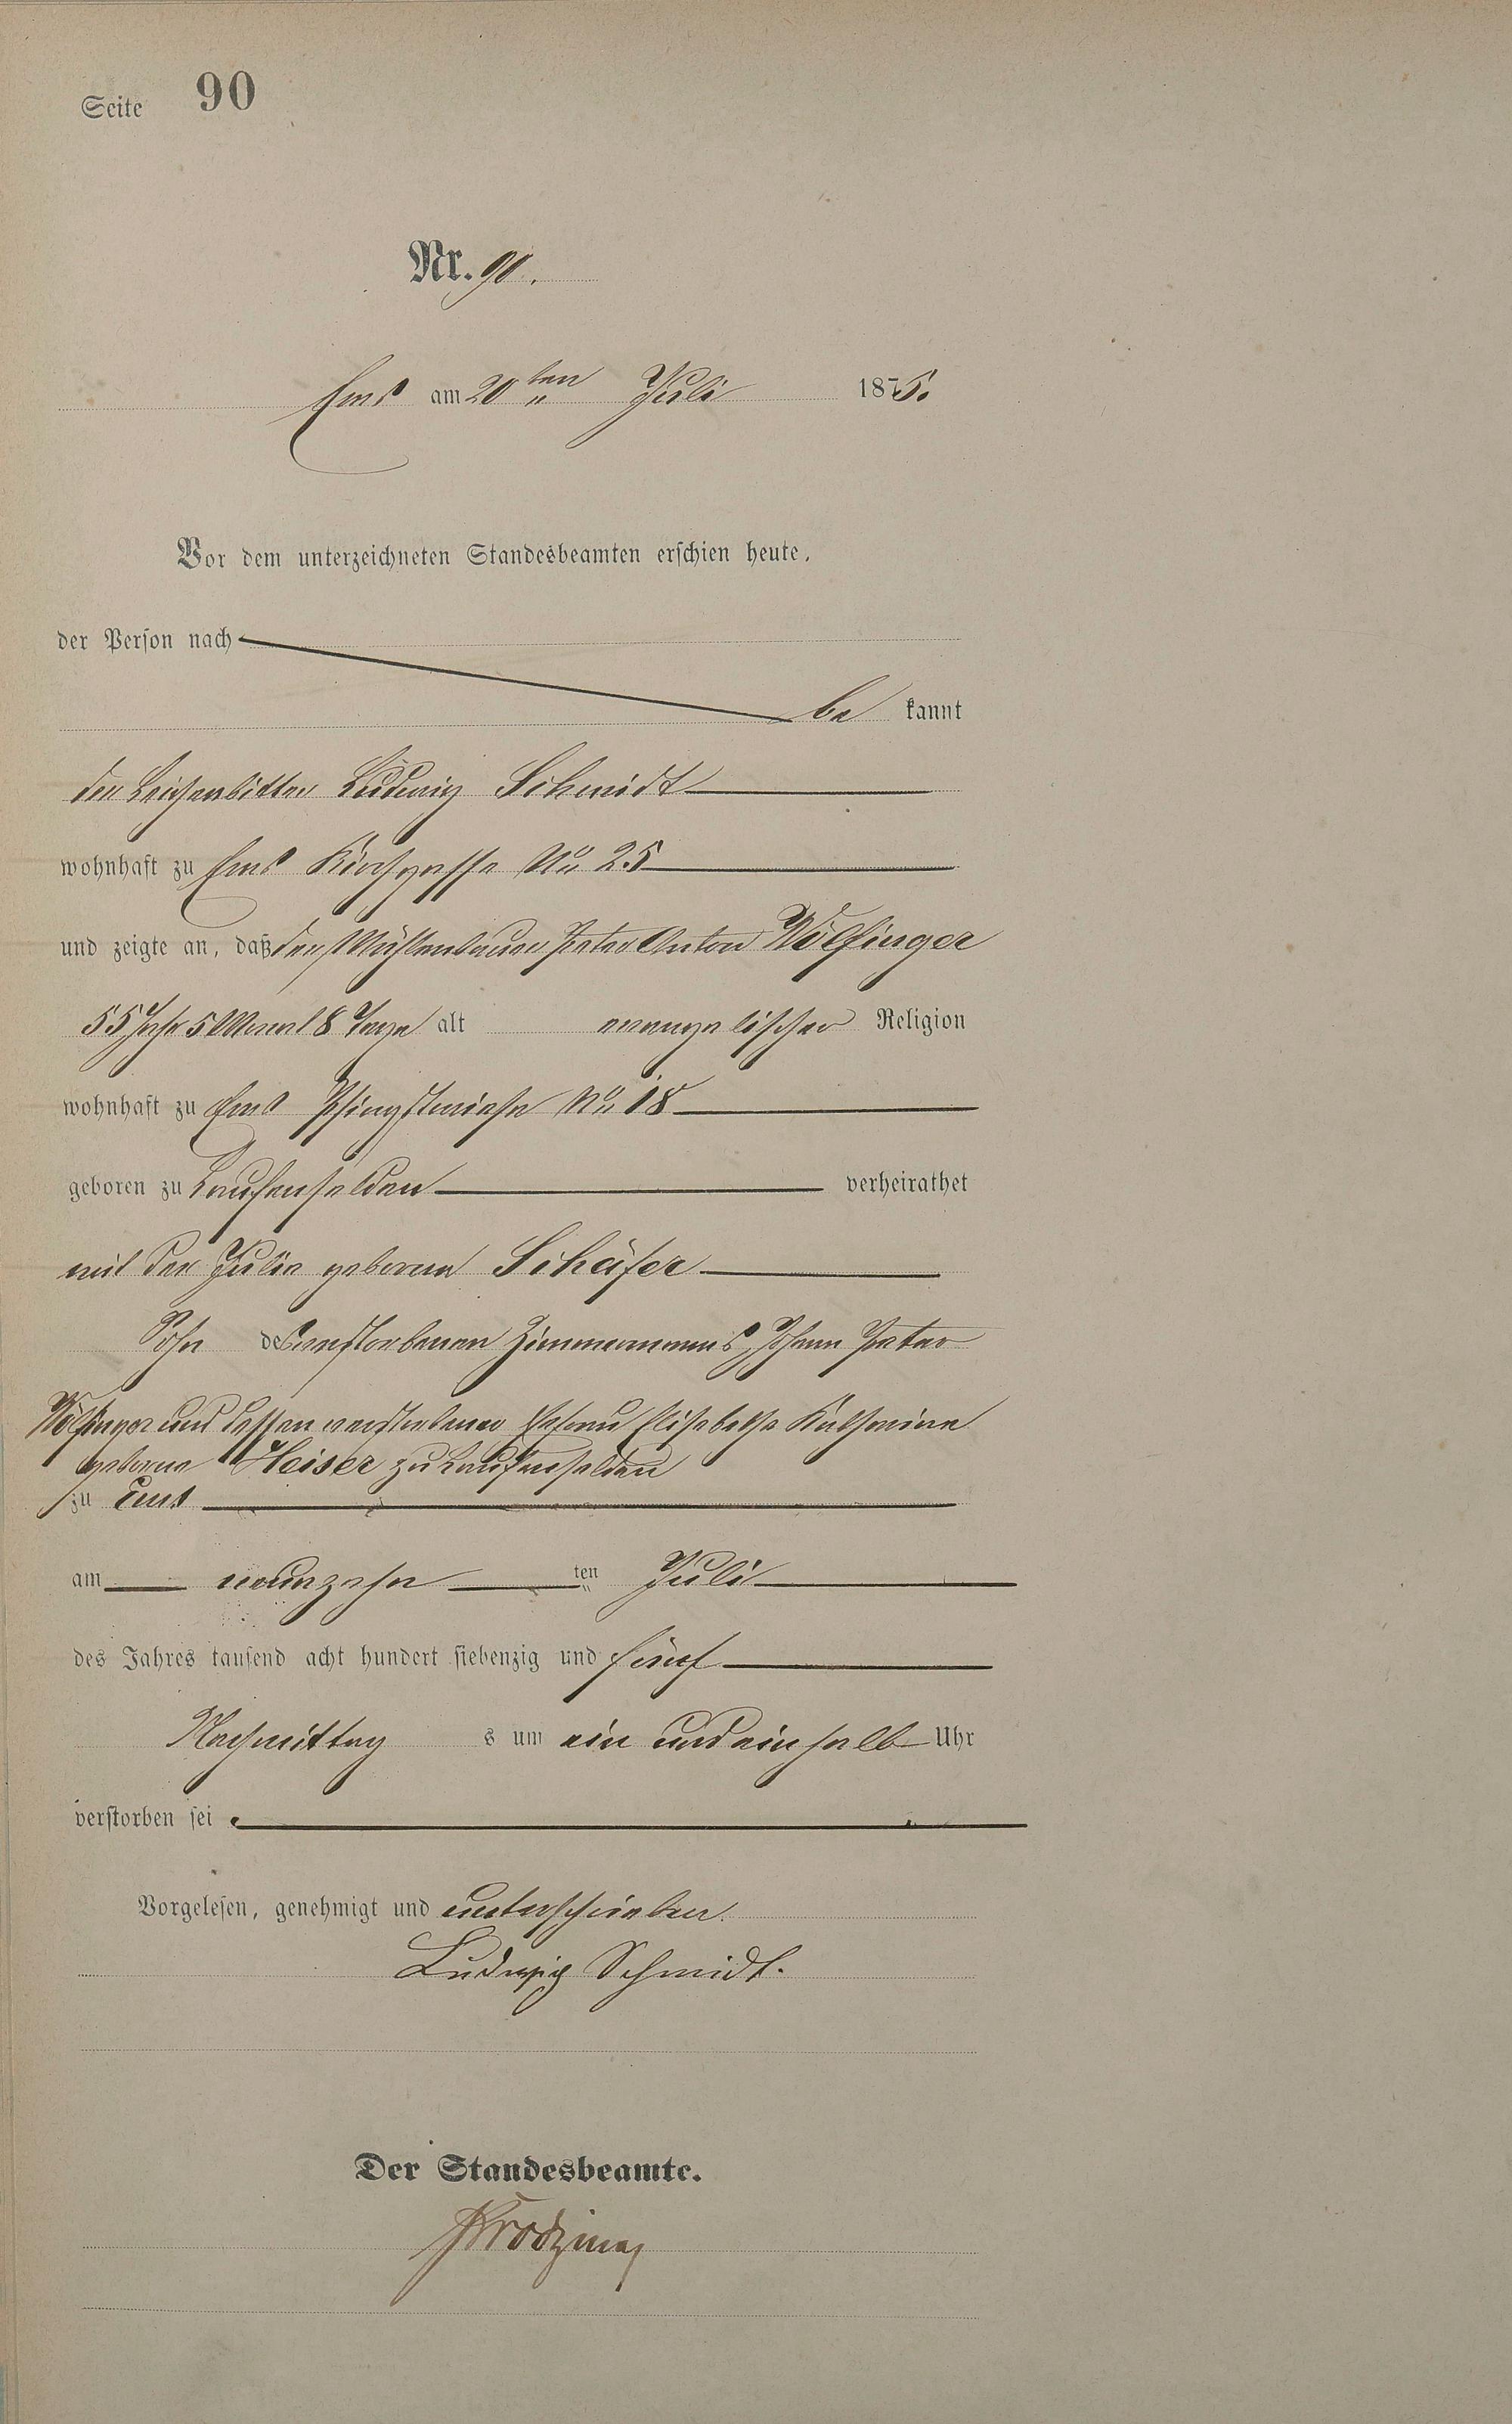 Seite 90
Nr. 90.
Ems am 20ten Juli 1875.
Vor dem unterzeichneten Standesbeamten erschien heute,
der Person nach
be kannt
der Leichenbitter Ludwig Schmidt
wohnhaft zu Ems Kirchgasse No 25
und zeigte an, daß der Mühlenbauer Peter Anton Wölfinger
55 Jahr 5 Monat 8 Tage alt evangelischer Religion
wohnhaft zu Ems Pfingstwiese No 18
geboren zu Laufenselden verheirathet
mit der Julie geborene Schäfer
Sohn des verstorbenen Zimmermanns Johann Peter
Wölfinger und dessen verstorbener Ehefrau Elisabetha Katharina
geborene Heiser zu Laufenselden
zu Ems
am neunzehn ten Juli
des Jahres tausend acht hundert siebenzig und fünf
Nachmittag s um ein und ein halb Uhr
verstorben sei
Vorgelesen, genehmigt und unterschrieben.
Ludwig Schmidt.
Der Standesbeamte.